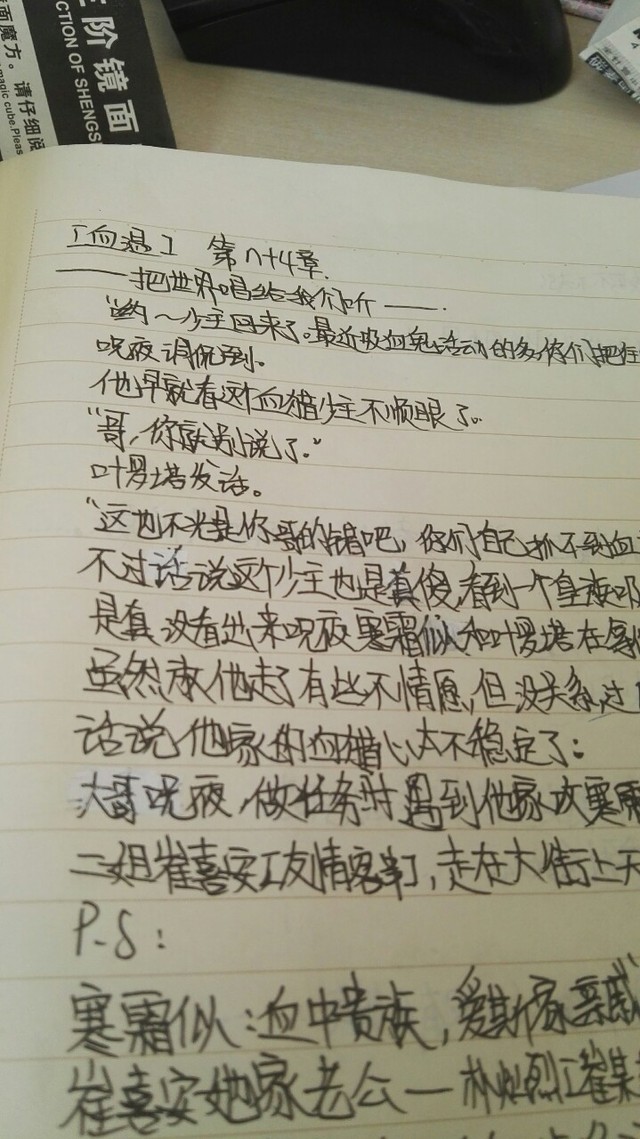 三阶镜面
CTION OF SHENGS
面魔方。请仔细说
magic cube.Pleas
「血温」 第n+4章.
——把世界唱给我们听——.
“哟～少主回来了。最近吸血鬼活动的多,你们把住
呪夜调侃到。
他早就看这个血猎少主不顺眼了。
“哥,你就别说了。”
叶罗塔发话。
“这也不光是你哥的错吧,你们自己抓不到血
不过话说这个少主也是真傻,看到一个皇族吸
是真没看出来呪夜寒霜似和叶罗塔在
虽然放他走了有些不情愿,但没关系,过
话说他家的血猎心太不稳定了:
大哥呪夜,做任务时遇到他家攻寒霜
二姐崔喜安[友情客串],走在大街上天
P.S:
寒霜似:血中贵族,爱斯家亲戚
崔喜安她家老公—朴灿烈[崔